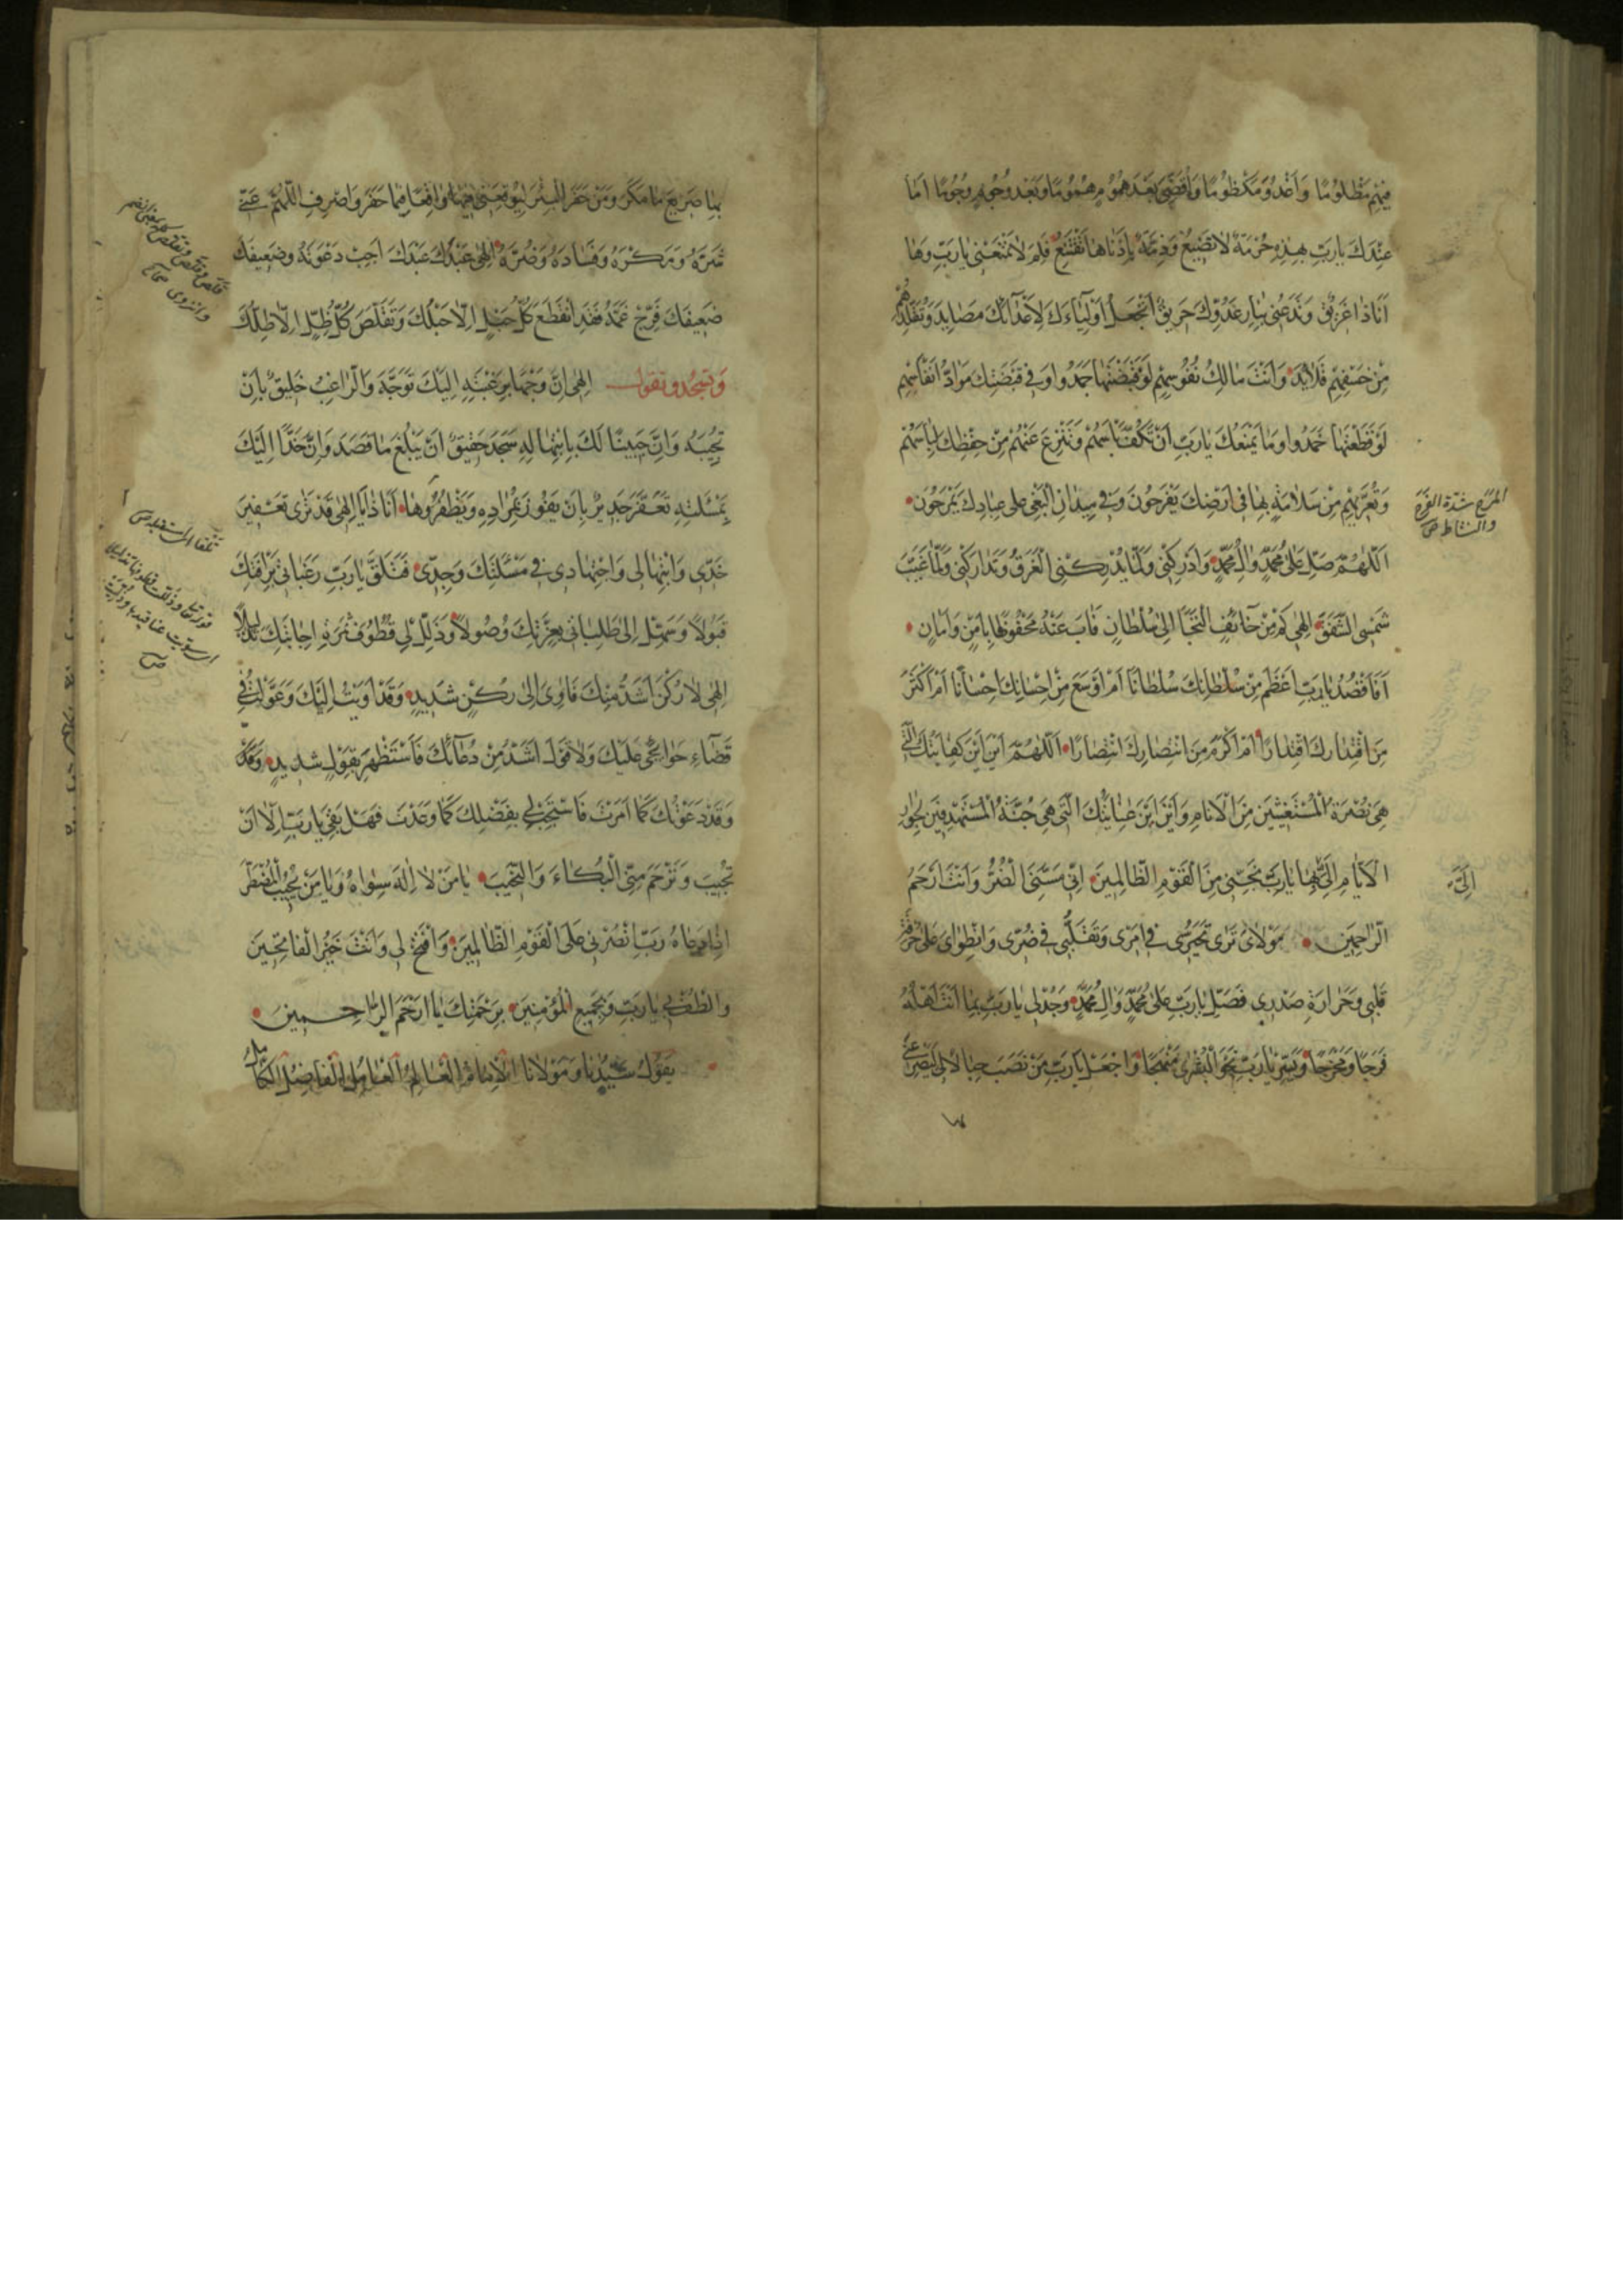 فيهم مظلوما واغدو مكظوما واقضى بعد هموم هموما وبعد وجوم وجوما اما
عندك يارب بهذه حرمة لا تضيع وذمة بادناها تقتنع فلم لا تمنعنى يارب وها
انا ذا غريق وتدعنى بنار عدوك حريق اتجعل اولياءك لاعدائك مصايد وتقلدهم
من خسفهم قلايد وانت مالك نفوسهم لو قبضتها جمدوا وفى قبضتك مواد انفاسهم
لو قطعتها خمدوا وما يمنعك يارب ان تكف باسهم وتنزع عنهم من حفظك لباسهم
وتعريهم من سلامة بها فى ارضك يفرحون وفى ميدان البغى على عبادك يمرحون
اللهم صل على محمد وال محمد وادركنى ولما يدركنى الغرق وتداركنى ولما غيب
شمسى الشفق الهى كم من خائف التجا الى سلطان فاب عنه محفوفا بامن وامان
افاقصد يارب اعظم من سلطانك سلطانا ام اوسع من احسانك احسانا ام اكثر
من اقتدارك اقتدارا ام اكرم من انتصارك انتصارا اللهم اين اين كفايتك التى
هى نصرة المستغيثين من الانام واين اين عنايتك التى هى جنة المستهدفين لجور
الايام الى بها يارب نجنى من القوم الظالمين انى مسنى الضر وانت ارحم
الراحمين مولاى ترى تحيرى فى امرى وتقلبى فى ضرى وانطواى على حرقة
قلبى وحرارة صدرى فصل يارب على محمد وال محمد وجد لى يارب بما انت اهله
فرجا ومخرجا ويسر يارب نحو البشرى منهجا واجعل يارب من نصب حبالا لى ليصرعنى
المرح شدة الفرح
والنشاط ص
الى
بها صريع ما مكر ومن حفر البئر ليوقعنى فيها واقعا فيما حفر واصرف اللهم عنى
شره ومكره وفساده وضره الهى عبدك عبدك اجب دعوته وضعيفك
ضعيفك فرج غمه فقد انقطع كل حبل الا حبلك وتقلص كل ظل الا ظلك
وتسجد وتقول الهى ان وجها برغبته اليك توجه والراغب خليق بان
تجيبه وان جبينا لك بابتهاله سجد حقيق ان يبلغ ما قصد وان خدا اليك
بمسئلته تعفر جدير بان يفوز بمراده ويظفر وها انا ذا يا الهى قد ترى تعفير
خدى وابتهالى واجتهادى فى مسئلتك وجدى فتلق يارب رغباتى برافتك
قبولا وسهل الى طلباتى بعزتك وصولا وذلل لى قطوف ثمرة اجابتك تذليلا
الهى لا ركن اشد منك فاوى الى ركن شديد وقد اويت اليك وعولت فى
قضاء حوائجى عليك ولا قول اشد من دعائك فاستظهر بقول شديد وقد
وقد دعوتك كما امرت فاستجب لى بفضلك كما وعدت فهل بقى يارب الا ان
تجيب وترحم منى البكاء والنحيب يا من لا اله سواه ويا من يجيب المضطر
اذا دعاه رب انصرنى على القوم الظالمين وافتح لى وانت خير الفاتحين
والطف بى يارب وبجميع المؤمنين برحمتك يا ارحم الراحمين
يقول سيدنا ومولانا الامام العالم العامل الفاضل الكامل